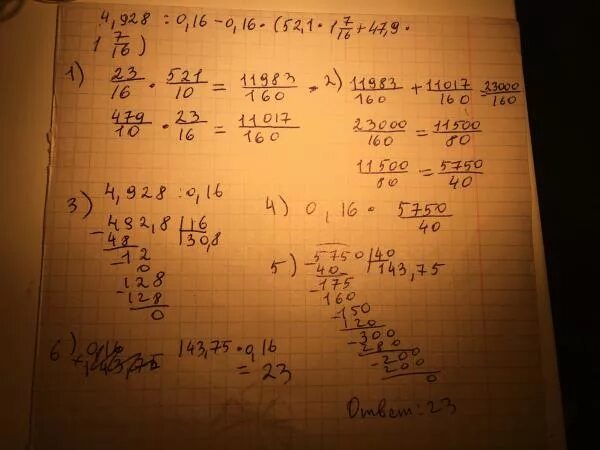 4,928 : 0,16 - 0,16 · (52,1 · 1 7/16 + 47,9 ·
1 7/16)
1) 23/16 · 521/10 = 11983/160
479/10 · 23/16 = 11017/160
2) 11983/160 + 11017/160 = 23000/160
23000/160 = 11500/80
11500/80 = 5750/40
3) 4,928 : 0,16
- 492,8 | 16
48 | 30,8
- 12
0
- 128
128
0
4) 0,16 · 5750/40
5) - 5750 | 40
40 | 143,75
- 175
160
- 150
120
- 300
280
- 200
200
0
6) 0,16
143,75
143,75 · 0,16
= 23
Ответ: 23